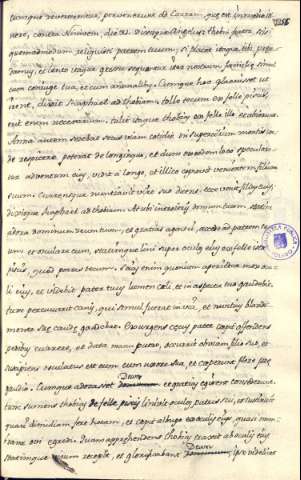 cumque reverterentur, pervenerunt ad Carram, quæ est in medio itinere, contra Niniven, die XI. dixitque Angelus: Thobi frater, scis
quemadmodum reliquisti patrem tuum; si placet itaque tibi præcedamus, et lento itinere
gressu sequantur iter nostrum familiæ simul
cum coniuge tua, et cum animalibus. Cumque hoc placuisset ut
irent, dixit Raphael ad Thobiam, tolle tecum ex felle piscis,
erit enim necessarium. tulit itaque Thobias ex felle illo et abierunt.
Anna autem sedebat secus viam cotidie in supercilio montis unde
respicere poterat de longinquo, et dum ex eodem loco specularetur
adventum eius, vidit a longe, et illico agnovit venientem filium
suum. Currensque nuntiavit viro suo dicens, ecce venit filius tuus,
dixitque Raphael ad Thobiam At ubi introieris domum tuam, statim
adora dominum deum tuum, et gratias agens ei, accede ad patrem tuum,
et osculare eum, statimque lini super oculos eius ex felle isto
piscis, quod portas tecum. Scias enim quoniam aperientur oculi
eius, et videbit pater tuus lumen cæli et in aspectu tuo gaudebit.
tunc præcucurrit canis, qui simul fuerat in via, et nuntius blandimento
suæ caudæ gaudebat. Et consurgens cæcus pater cæpit offendens
pedibus currere, et data manu puero, occurrit obviam filio suo, et
suscipiens osculatus est eum cum uxore sua, et cæperunt flere præ
gaudio. Cumque adorassent Deum et gratias egissent consederunt.
tum sumens Thobias de felle piscis linivit oculos patris sui, et sustinuit
quasi dimidiam fere horam, et cæpit albugo ex oculis eius quasi membrana
ovi egredi. Quam apprehendens Thobias traxit ab oculis eius
statimque visum recepit, et glorificabant Deum ipse videlicet